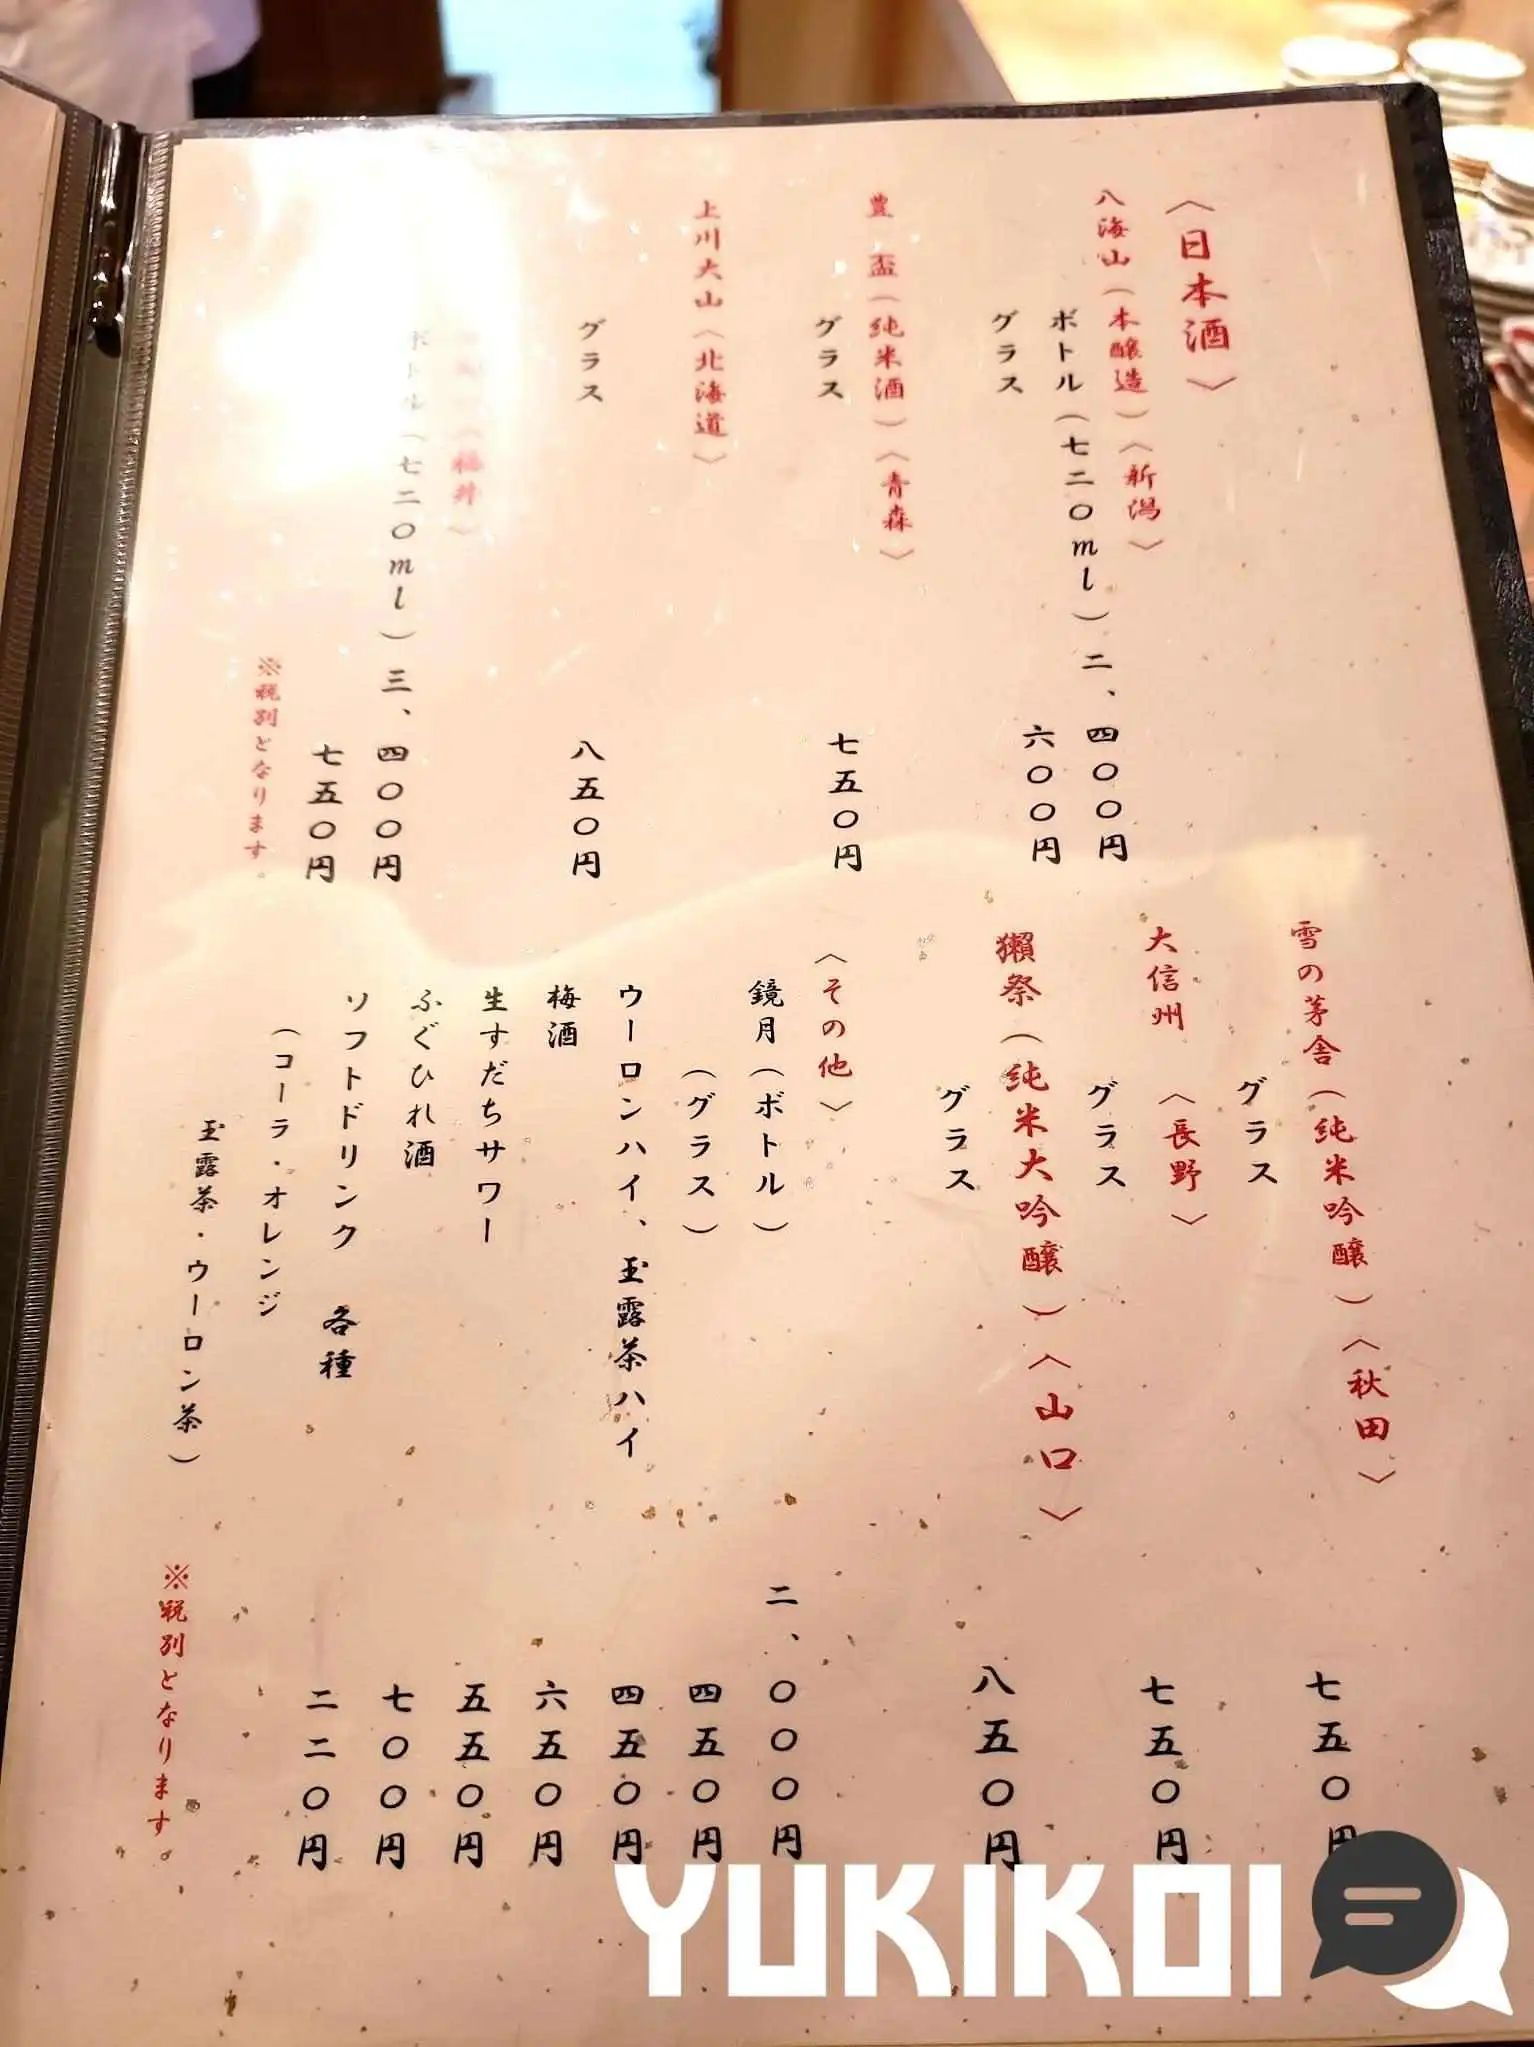 〈日本酒〉
八海山（本醸造）〈新潟〉
ボトル（七二〇ml）二、四〇〇円
グラス 六〇〇円
豊 盃（純米酒）〈青森〉
グラス 七五〇円
上川大山〈北海道〉
グラス 八五〇円
〈福井〉
ボトル（七二〇ml）三、四〇〇円
七五〇円
※税別となります。
雪の茅舎（純米吟醸）〈秋田〉
グラス 七五〇円
大信州 〈長野〉
グラス 七五〇円
獺祭（純米大吟醸）〈山口〉
グラス 八五〇円
〈その他〉
鏡月（ボトル） 二、〇〇〇円
（グラス） 四五〇円
ウーロンハイ、玉露茶ハイ 四五〇円
梅酒 六五〇円
生すだちサワー 五五〇円
ふぐひれ酒 七〇〇円
ソフトドリンク 各種 二二〇円
（コーラ・オレンジ
玉露茶・ウーロン茶）
※税別となります。
YUKIKOI